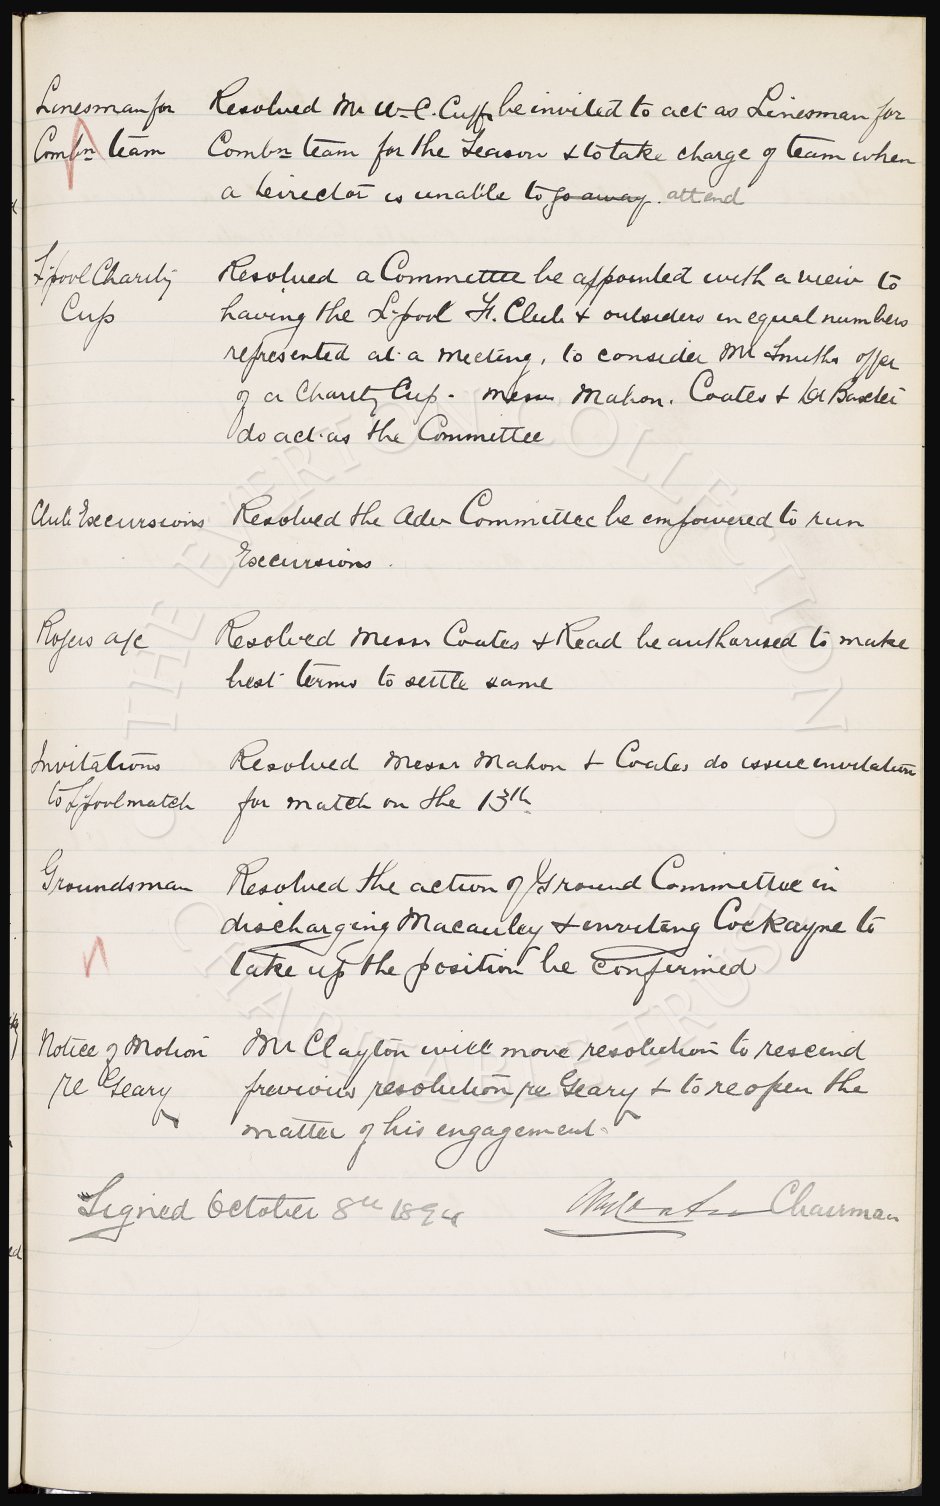 Linesman for Resolved Mr W. C. Cuff be invited to act as Linesman for
Combn team Combn team for the Season & to take charge of team when
a Director is unable to go away. attend
L'pool Charity Resolved a Committee be appointed with a view to
Cup having the L'pool F. Club & outsiders in equal numbers
represented at a meeting, to consider Mr Smiths offer
of a Charity Cup. Messrs Mahon, Coates & Dr Baxter
do act as the Committee
Club Excursions Resolved the Adv Committee be empowered to run
Excursions.
Rogers a/c Resolved Messrs Coates & Read be authorised to make
best terms to settle same
Invitations Resolved Messrs Mahon & Coates do issue invitation
to L'pool match for match on the 13th
Groundsman Resolved the action of Ground Committee in
discharging Macauley & inviting Cockayne to
take up the position be confirmed
Notice of Motion Mr Clayton will move resolution to rescind
re Geary previous resolution re Geary & to reopen the
matter of his engagement.
Signed October 8th 1894 Chairman
THE EVERTON COLLECTION
CHARITABLE TRUST